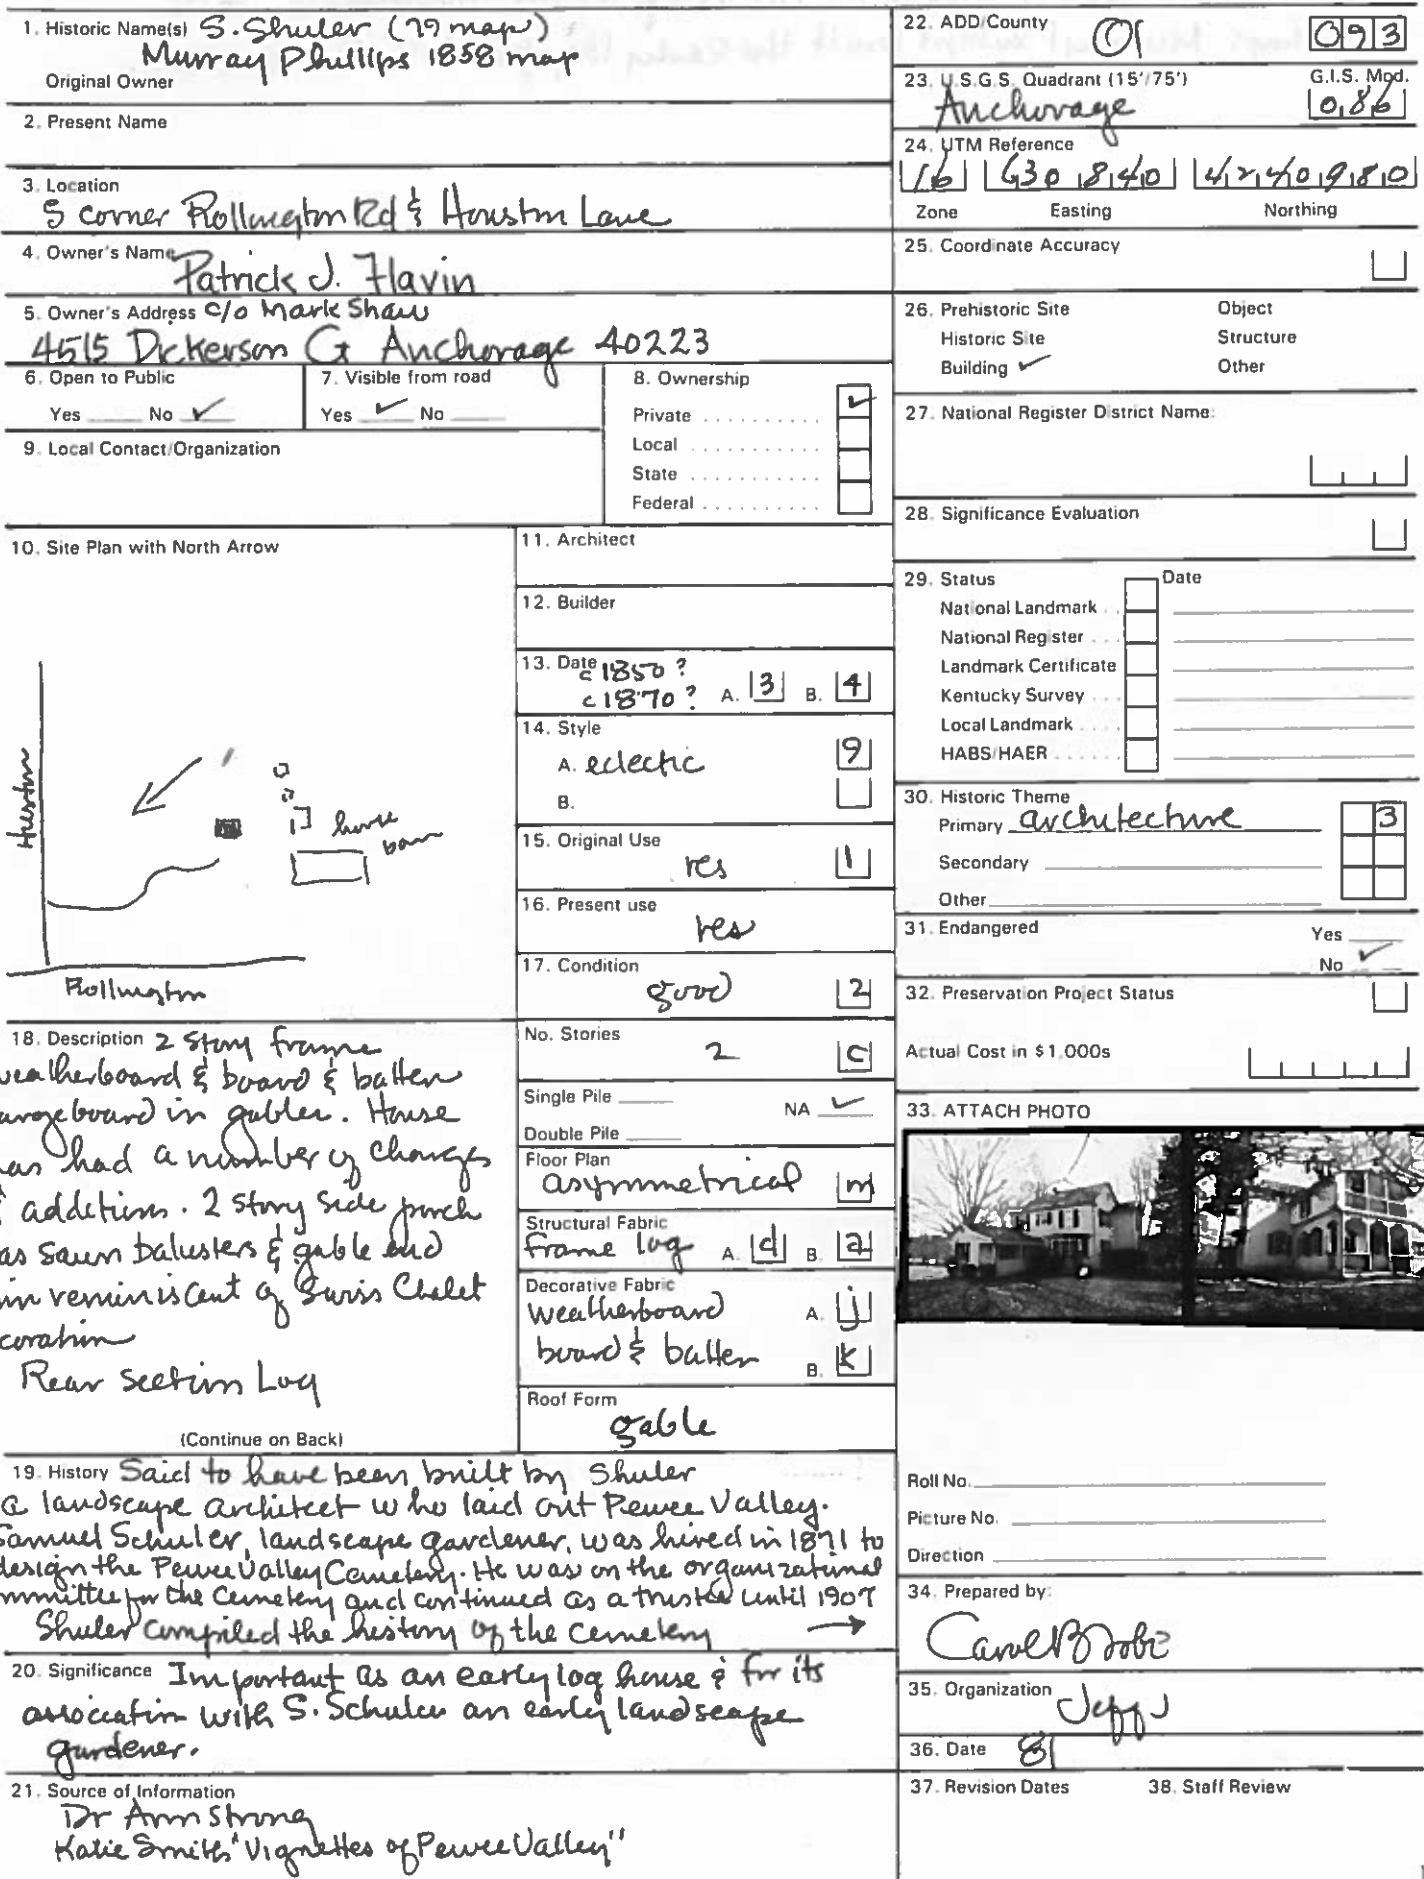 1. Historic Name(s) S. Shuler (79 map)
Murray Phillips 1858 map
Original Owner
2. Present Name
3. Location
S corner Rollington Rd & Houston Lane
4. Owner's Name Patrick J. Flavin
5. Owner's Address c/o Mark Shaw
4515 Dickerson Ct Anchorage 40223
6. Open to Public
Yes No ✓
7. Visible from road
Yes ✓ No
8. Ownership
Private ✓
Local
State
Federal
9. Local Contact/Organization
10. Site Plan with North Arrow
Huston
horse
barn
Rollington
11. Architect
12. Builder
13. Date c 1850 ?
c 1870 ? A. 3 B. 4
14. Style 9
A. eclectic
B.
15. Original Use
res 1
16. Present use
res
17. Condition
good 2
18. Description 2 story frame
weatherboard & board & batten
argeboard in gables. House
as had a number of changes
& additions. 2 story side porch
as sawn balusters & gable end
im reminiscent of Swiss Chalet
coration
Rear section Log
(Continue on Back)
No. Stories
2 C
Single Pile
NA ✓
Double Pile
Floor Plan
asymmetrical m
Structural Fabric
frame log A. d B. a
Decorative Fabric
weatherboard A. j
board & batten B. k
Roof Form
gable
19. History Said to have been built by Shuler
a landscape architect who laid out Pewee Valley.
Samuel Schuler, landscape gardener, was hired in 1871 to
design the Pewee Valley Cemetery. He was on the organizational
mmittee for the Cemetery and continued as a trustee until 1907
Shuler compiled the history of the cemetery →
20. Significance Important as an early log house & for its
association with S. Schuler an early landscape
gardener.
21. Source of Information
Dr Armstrong
Katie Smith "Vignettes of Pewee Valley"
22. ADD/County Ol 093
23. U.S.G.S. Quadrant (15'/75') G.I.S. Mod.
Anchorage 086
24. UTM Reference
16 630 840 4240980
Zone Easting Northing
25. Coordinate Accuracy
26. Prehistoric Site Object
Historic Site Structure
Building ✓ Other
27. National Register District Name:
28. Significance Evaluation
29. Status Date
National Landmark
National Register
Landmark Certificate
Kentucky Survey
Local Landmark
HABS/HAER
30. Historic Theme
Primary architecture 3
Secondary
Other
31. Endangered Yes
No ✓
32. Preservation Project Status
Actual Cost in $1,000s
33. ATTACH PHOTO
Roll No.
Picture No.
Direction
34. Prepared by:
Carol B
35. Organization Jeff J
36. Date 81
37. Revision Dates 38. Staff Review